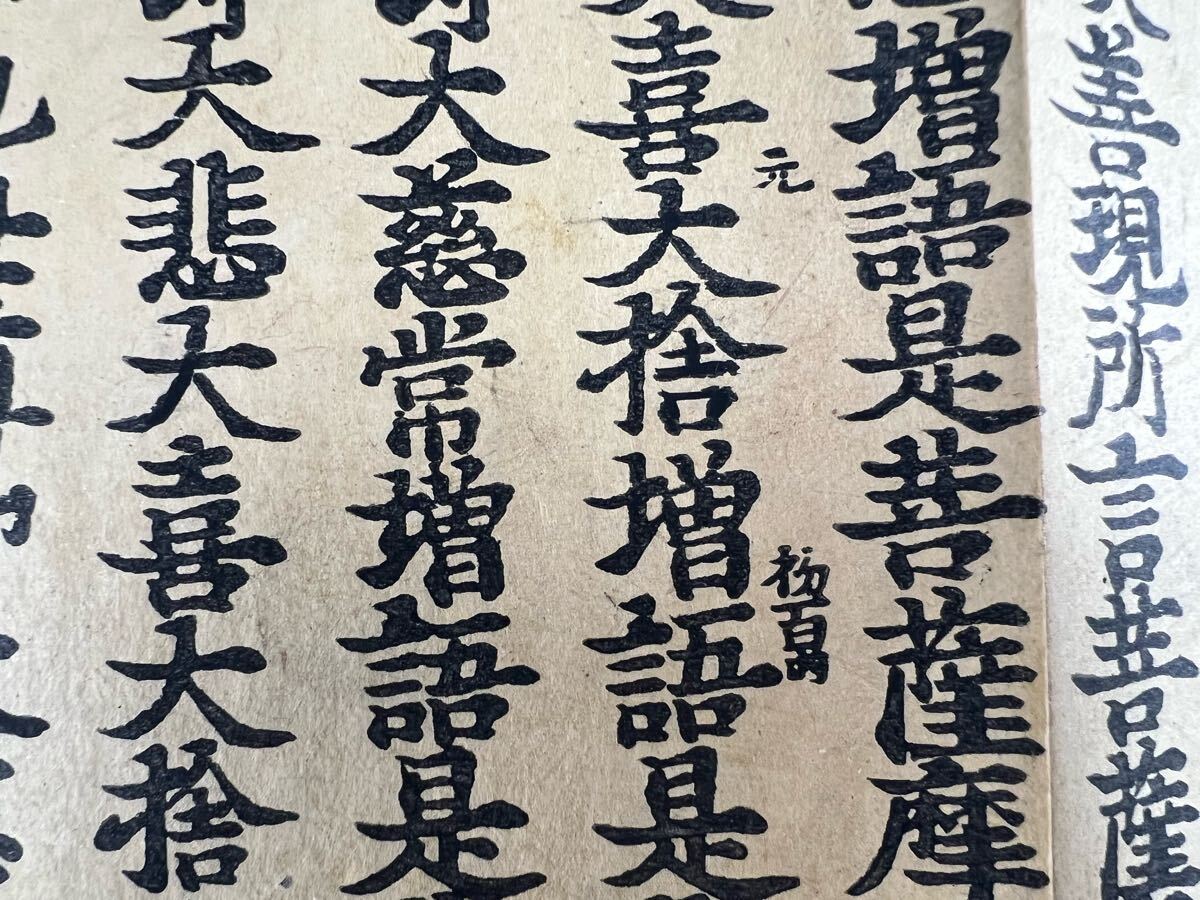 善現所言菩薩
増語是菩薩摩
喜大捨増語是
元
杨百丙
大慈常増語是
大悲大喜大捨